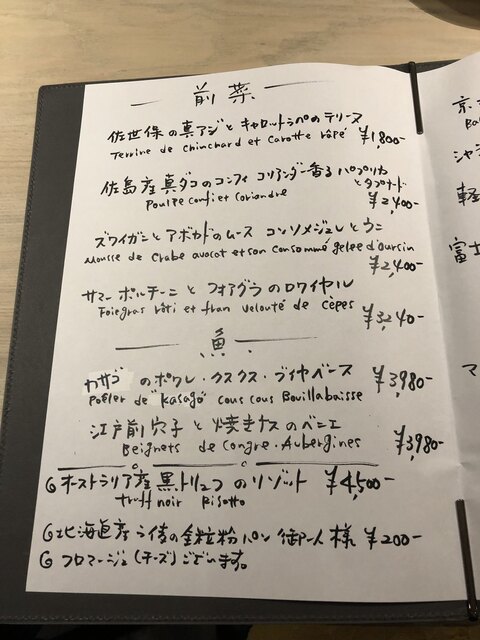 前菜
佐世保の真アジとキャロットラペのテリーヌ
Terrine de Chinchard et Carotte râpé ¥1800-
佐島産真ダコのコンフィ コリアンダー香る パプリカ
とタプナード
Poulpe confi et coriandre ¥2,400-
ズワイガニとアボカドのムース コンソメジュレとウニ
Mousse de Crabe avocat et son consommé gelée d'oursin
¥2,400-
サマーポルチーニとフォアグラのロワイヤル
Foiegras rôti et flan velouté de cèpes
¥3,240-
魚
カサゴ のポワレ・クスクス・ブイヤベース ¥3,980-
Poêler de "Kasago" cous cous Bouillabaisse
江戸前穴子と焼きナスのベニエ
Beignets de Congre・Aubergines ¥3,980-
オーストラリア産黒トリュフのリゾット ¥4,500-
truff noir Risotto
北海道産 の全粒粉パン 御一人様 ¥200-
フロマージュ(チーズ)ございます。
京
シャ
軽
富士
マ